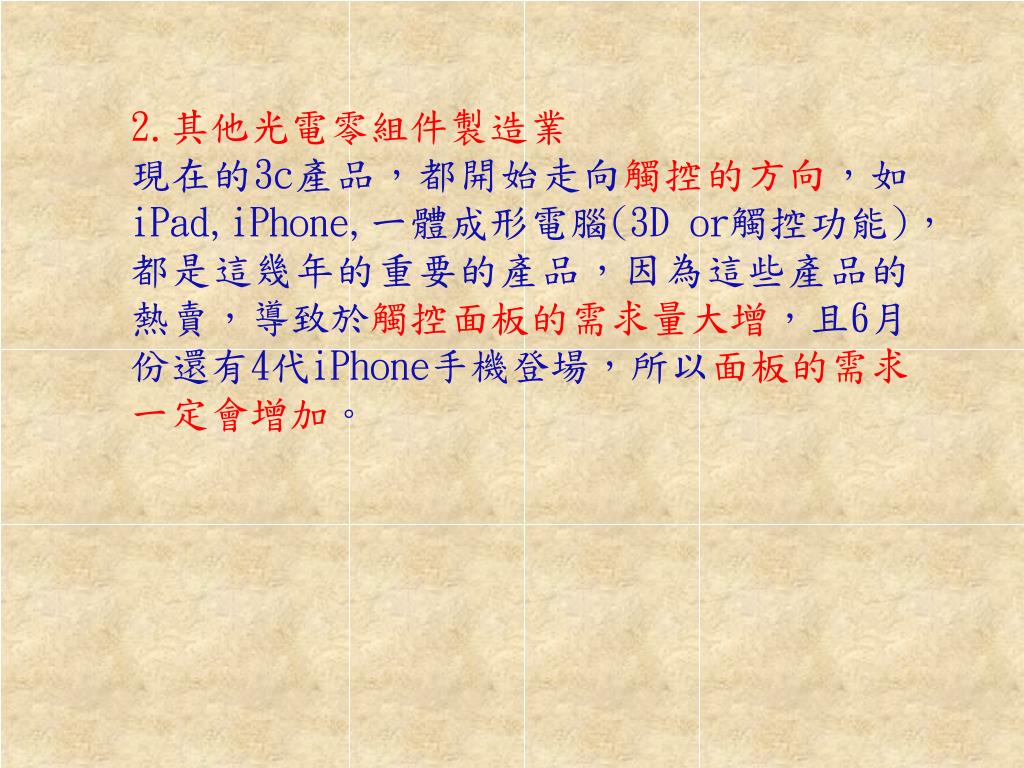 2.其他光電零組件製造業
現在的3c產品，都開始走向觸控的方向，如
iPad,iPhone,一體成形電腦(3D or觸控功能)，
都是這幾年的重要的產品，因為這些產品的
熱賣，導致於觸控面板的需求量大增，且6月
份還有4代iPhone手機登場，所以面板的需求
一定會增加。